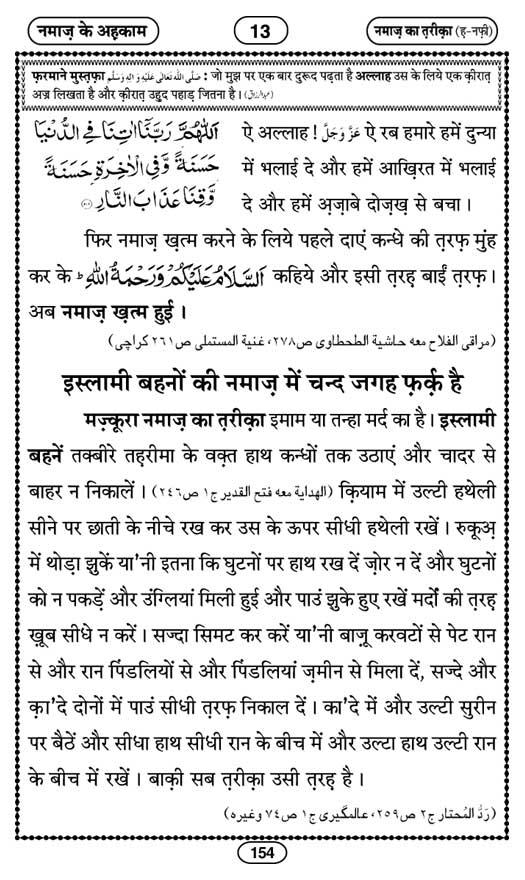 नमाज़ के अहकाम
13
नमाज़ का त़रीक़ा (ह-नफ़ी)
फ़रमाने मुस्तफ़ा صَلَّى اللهُ تَعَالٰى عَلَيْهِ وَ اٰلِهٖ وَسَلَّم : जो मुझ पर एक बार दुरूद पढ़ता है अल्लाह उस के लिये एक क़ीरात़
अज्र लिखता है और क़ीरात़ उहुद पहाड़ जितना है । (عبدالرزاق)
اَللّٰهُمَّ رَبَّنَا اٰتِنَا فِي الدُّنْيَا ऐ अल्लाह ! عَزَّ وَجَلَّ ऐ रब हमारे हमें दुन्या
حَسَنَةً وَّفِي الْاٰخِرَةِ حَسَنَةً में भलाई दे और हमें आख़िरत में भलाई
وَّقِنَا عَذَابَ النَّارِ ﴿٢٠١﴾ दे और हमें अ़ज़ाबे दोज़ख़ से बचा ।
फिर नमाज़ ख़त्म करने के लिये पहले दाएं कन्धे की त़रफ़ मुंह
कर के اَلسَّلَامُ عَلَيْكُمْ وَرَحْمَةُ اللهِ ط कहिये और इसी त़रह़ बाईं त़रफ़ ।
अब नमाज़ ख़त्म हुई ।
(مراقی الفلاح معہ حاشیة الطحطاوی ص٢٧٨، غنیة المستملی ص٢٦١ کراچی)
इस्लामी बहनों की नमाज़ में चन्द जगह फ़र्क़ है
मज़्कूरा नमाज़ का त़रीक़ा इमाम या तन्हा मर्द का है । इस्लामी
बहनें तक्बीरे तह़रीमा के वक़्त हाथ कन्धों तक उठाएं और चादर से
बाहर न निकालें । (الهداية معه فتح القدير ج١ ص٢٤٦) क़ियाम में उल्टी हथेली
सीने पर छाती के नीचे रख कर उस के ऊपर सीधी हथेली रखें । रुकूअ़
में थोड़ा झुकें या'नी इतना कि घुटनों पर हाथ रख दें ज़ोर न दें और घुटनों
को न पकड़ें और उंग्लियां मिली हुई और पाउं झुके हुए रखें मर्दों की त़रह़
ख़ूब सीधे न करें । सज्दा सिमट कर करें या'नी बाज़ू करवटों से पेट रान
से और रान पिंडलियों से और पिंडलियां ज़मीन से मिला दें, सज्दे और
क़ा'दे दोनों में पाउं सीधी त़रफ़ निकाल दें । का'दे में और उल्टी सुरीन
पर बैठें और सीधा हाथ सीधी रान के बीच में और उल्टा हाथ उल्टी रान
के बीच में रखें । बाक़ी सब त़रीक़ा उसी त़रह़ है ।
(رَدُّ المُحتار ج٢ ص٢٥٩، عالمگیری ج١ ص٧٤ وغیرہ)
154